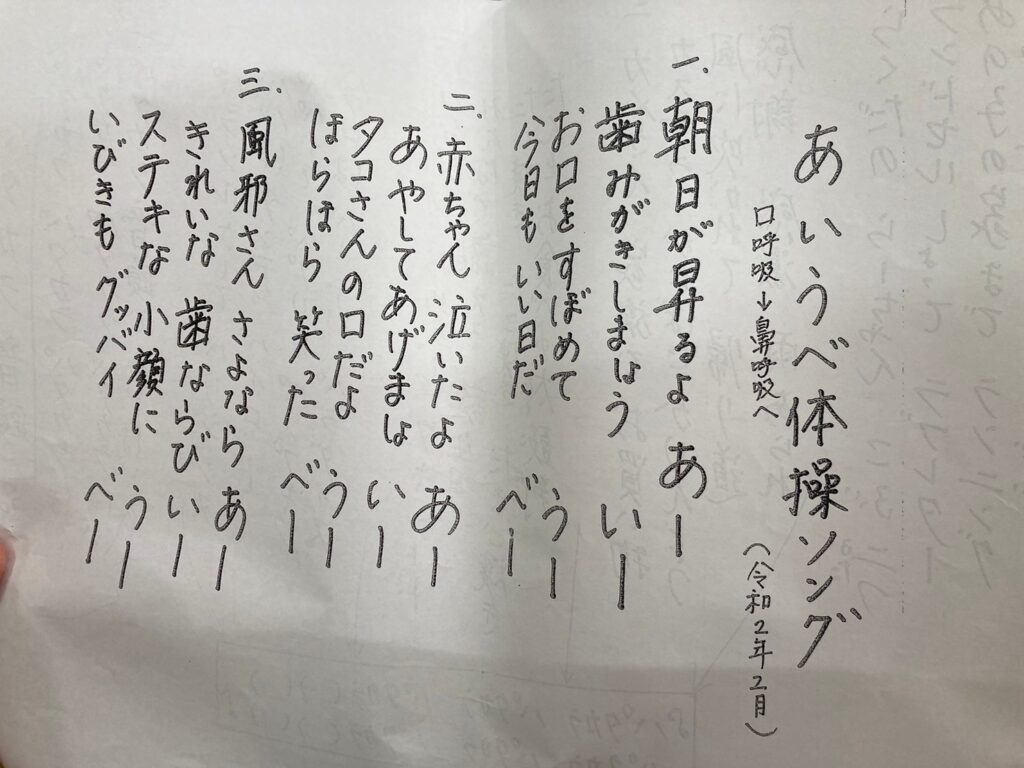 あいうべ体操ソング
口呼吸→鼻呼吸へ
(令和2年2月)
一. 朝日が昇るよ あー
歯みがきしましょう いー
お口をすぼめて うー
今日も いい日だ べー
二. 赤ちゃん 泣いたよ あー
あやしてあげましょ いー
タコさんの口だよ うー
ほらほら 笑った べー
三. 風邪さん さよなら あー
きれいな 歯ならび いー
ステキな 小顔に うー
いびきも グッバイ べー